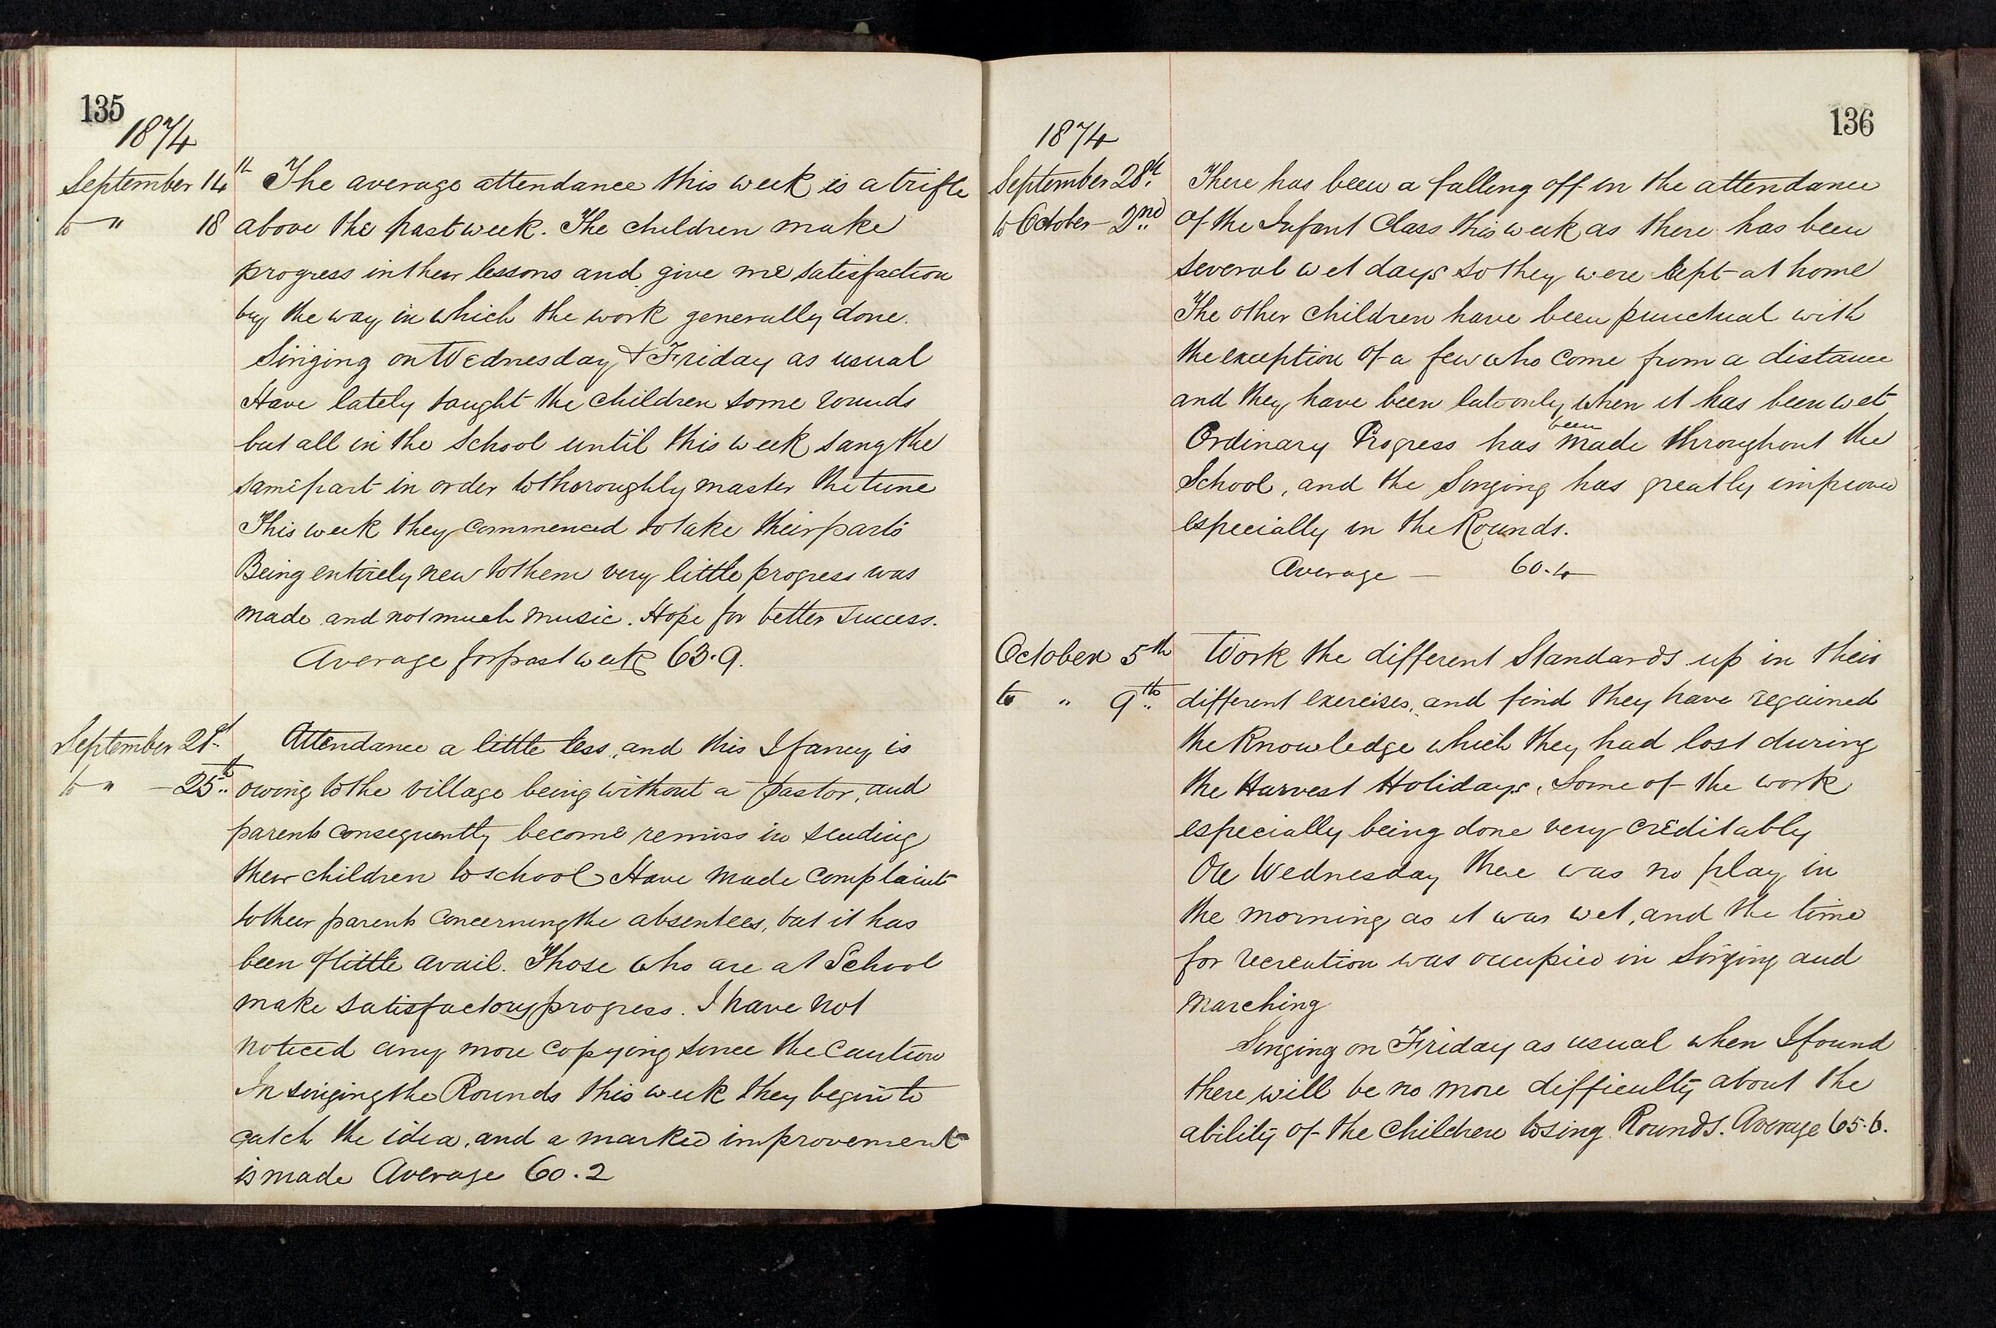 135
1874
September 14th The average attendance this week is a trifle
to " 18 above the past week. The children make
progress in their lessons and give me satisfaction
by the way in which the work generally done.
Singing on Wednesday & Friday as usual
Have lately taught the children some rounds
but all in the School until this week sang the
same part in order to thoroughly master the tune
This week they commenced to take their parts
Being entirely new to them very little progress was
made and not much music. Hope for better success.
Average for past week 63.9.
September 21st Attendance a little less, and this I fancy is
to " - 25th owing to the village being without a Pastor, and
parents consequently become remiss in sending
their children to school Have made complaint
to their parents concerning the absentees, but it has
been of little avail. Those who are at School
make satisfactory progress. I have not
noticed any more copying since the caution
In singing the Rounds this week they begin to
catch the idea, and a marked improvement
is made Average 60.2
136
1874
September 28th There has been a falling off in the attendance
to October - 2nd of the Infant Class this week as there has been
several wet days so they were kept at home
The other children have been punctual with
the exception of a few who come from a distance
and they have been late only when it has been wet
Ordinary Progress has been made throughout the
School, and the Singing has greatly improved
especially in the Rounds.
Average — 60.4
October 5th Work the different Standards up in their
to " 9th different exercises, and find they have regained
the Knowledge which they had lost during
the Harvest Holidays, Some of the work
especially being done very creditably
On Wednesday there was no play in
the morning as it was wet, and the time
for recreation was occupied in Singing and
marching
Singing on Friday as usual when I found
there will be no more difficulty about the
ability of the Children to sing Rounds. Average 65.6.